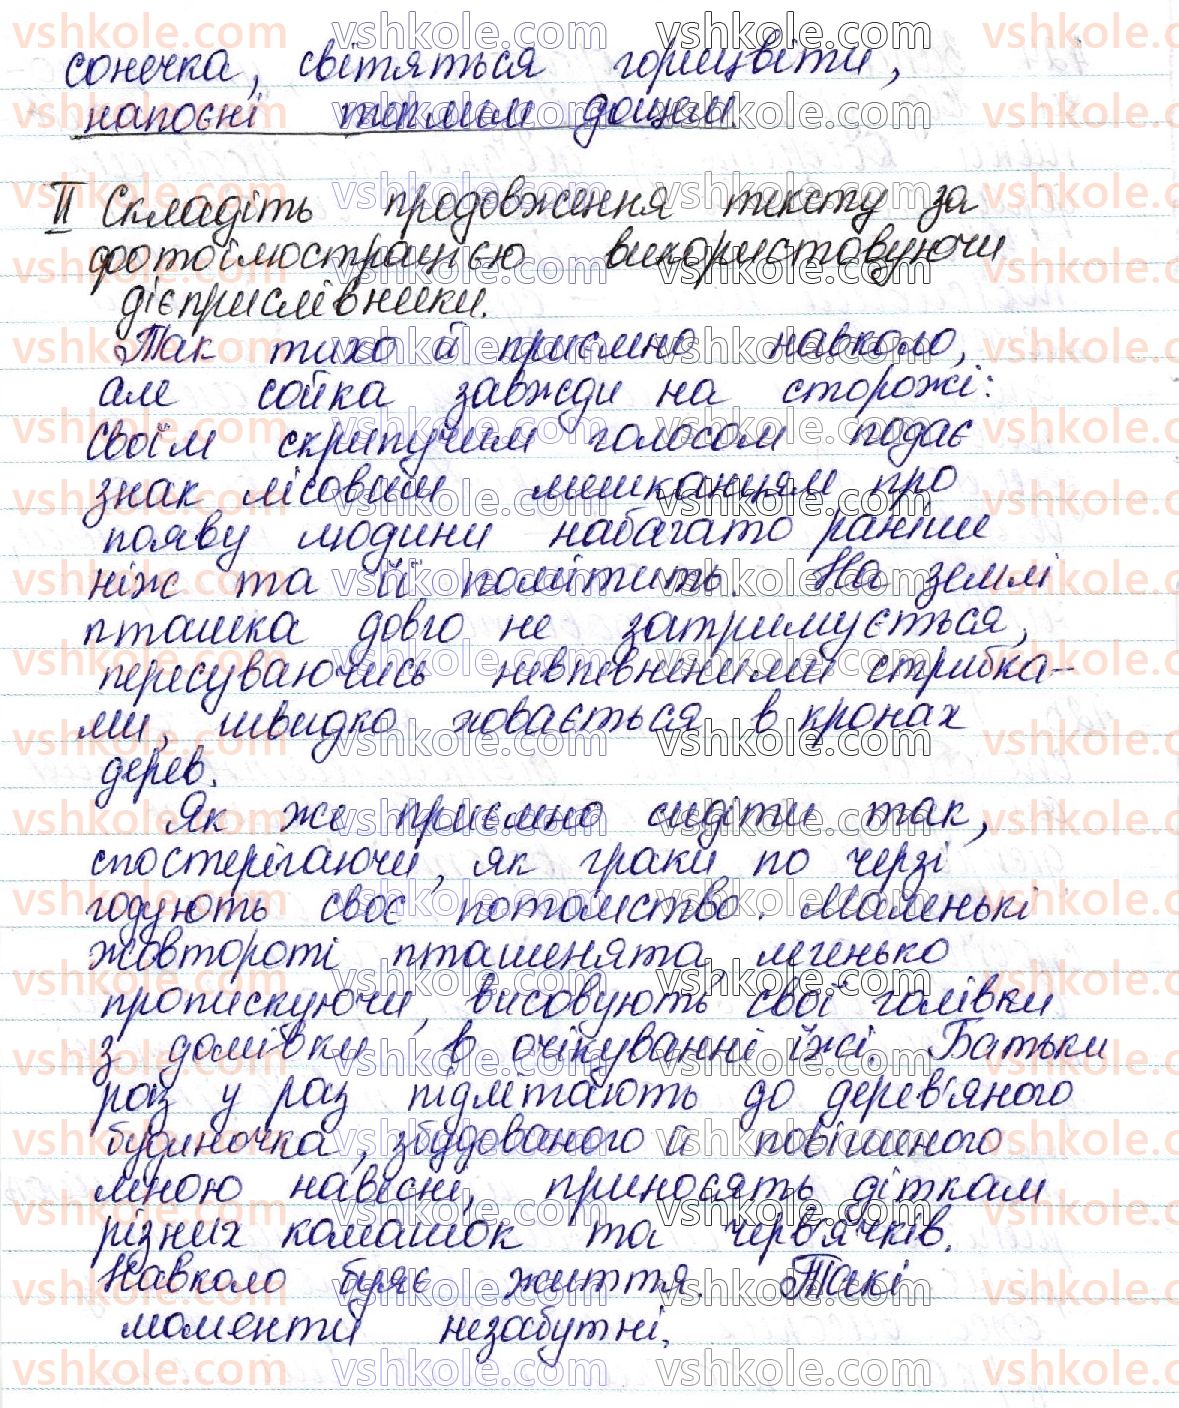 сонечка, світяться горицвіти,
напоєні теплим дощем.
II Складіть продовження тексту за
фотоілюстрацією використовуючи
дієприслівники.
Так тихо й приємно навколо,
але сойка завжди на сторожі:
своїм скрипучим голосом подає
знак лісовим мешканцям про
появу людини набагато раніше
ніж та її помітить. На землі
пташка довго не затримується,
пересуваючись невпевненими стрибка-
ми, швидко ховається в кронах
дерев.
Як же приємно сидіти так,
спостерігаючи, як граки по черзі
годують своє потомство. Маленькі
жовтороті пташенята, легенько
пропискуючи, висовують свої голівки
з домівки в очікуванні їжі. Батьки
раз у раз підлітають до дерев'яного
будиночка, збудованого й повішеного
мною навесні, приносять діткам
різних комашок та черв'ячків.
Навколо буяє життя. Такі
моменти незабутні.
vshkole.com